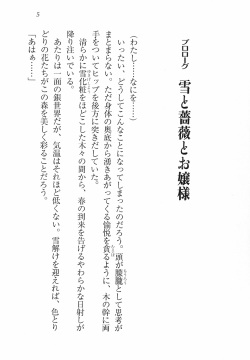 プロローグ 雪と薔薇とお嬢様
(わたし……なにを……)
いったい、どうしてこんなことになってしまったのだろう。頭が朦朧として思考が
まとまらない。ただ身体の奥底から湧きあがってくる愉悦を貪るように、木の幹に両
手をついてヒップを後方に突きだしていた。
清らかに雪化粧をほどこした木々の間から、春の到来を告げるやわらかな日射しが
降り注いでいる。
あたりは一面の銀世界だが、気温はそれほど低くない。雪解けを迎えれば、色とり
どりの花たちがこの森を美しく彩ることだろう。
「あはぁ……」
5